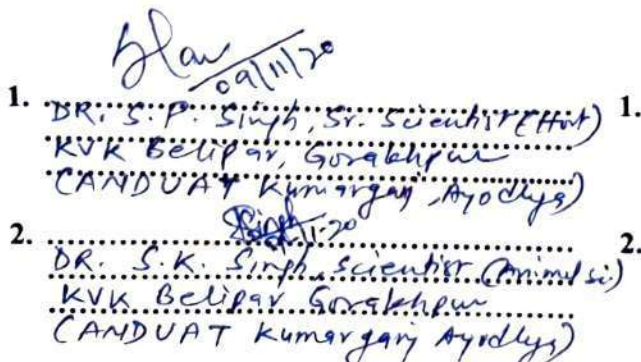 09/11/20
1. DR. S. P. Singh, Sr. Scientist (Hort) 1.
KVK Belipar, Gorakhpur
(ANDUAT Kumarganj, Ayodhya)
2. 2.
DR. S. K. Singh, Scientist (Animal sc.)
KVK Belipar Gorakhpur
(ANDUAT Kumarganj Ayodhya)